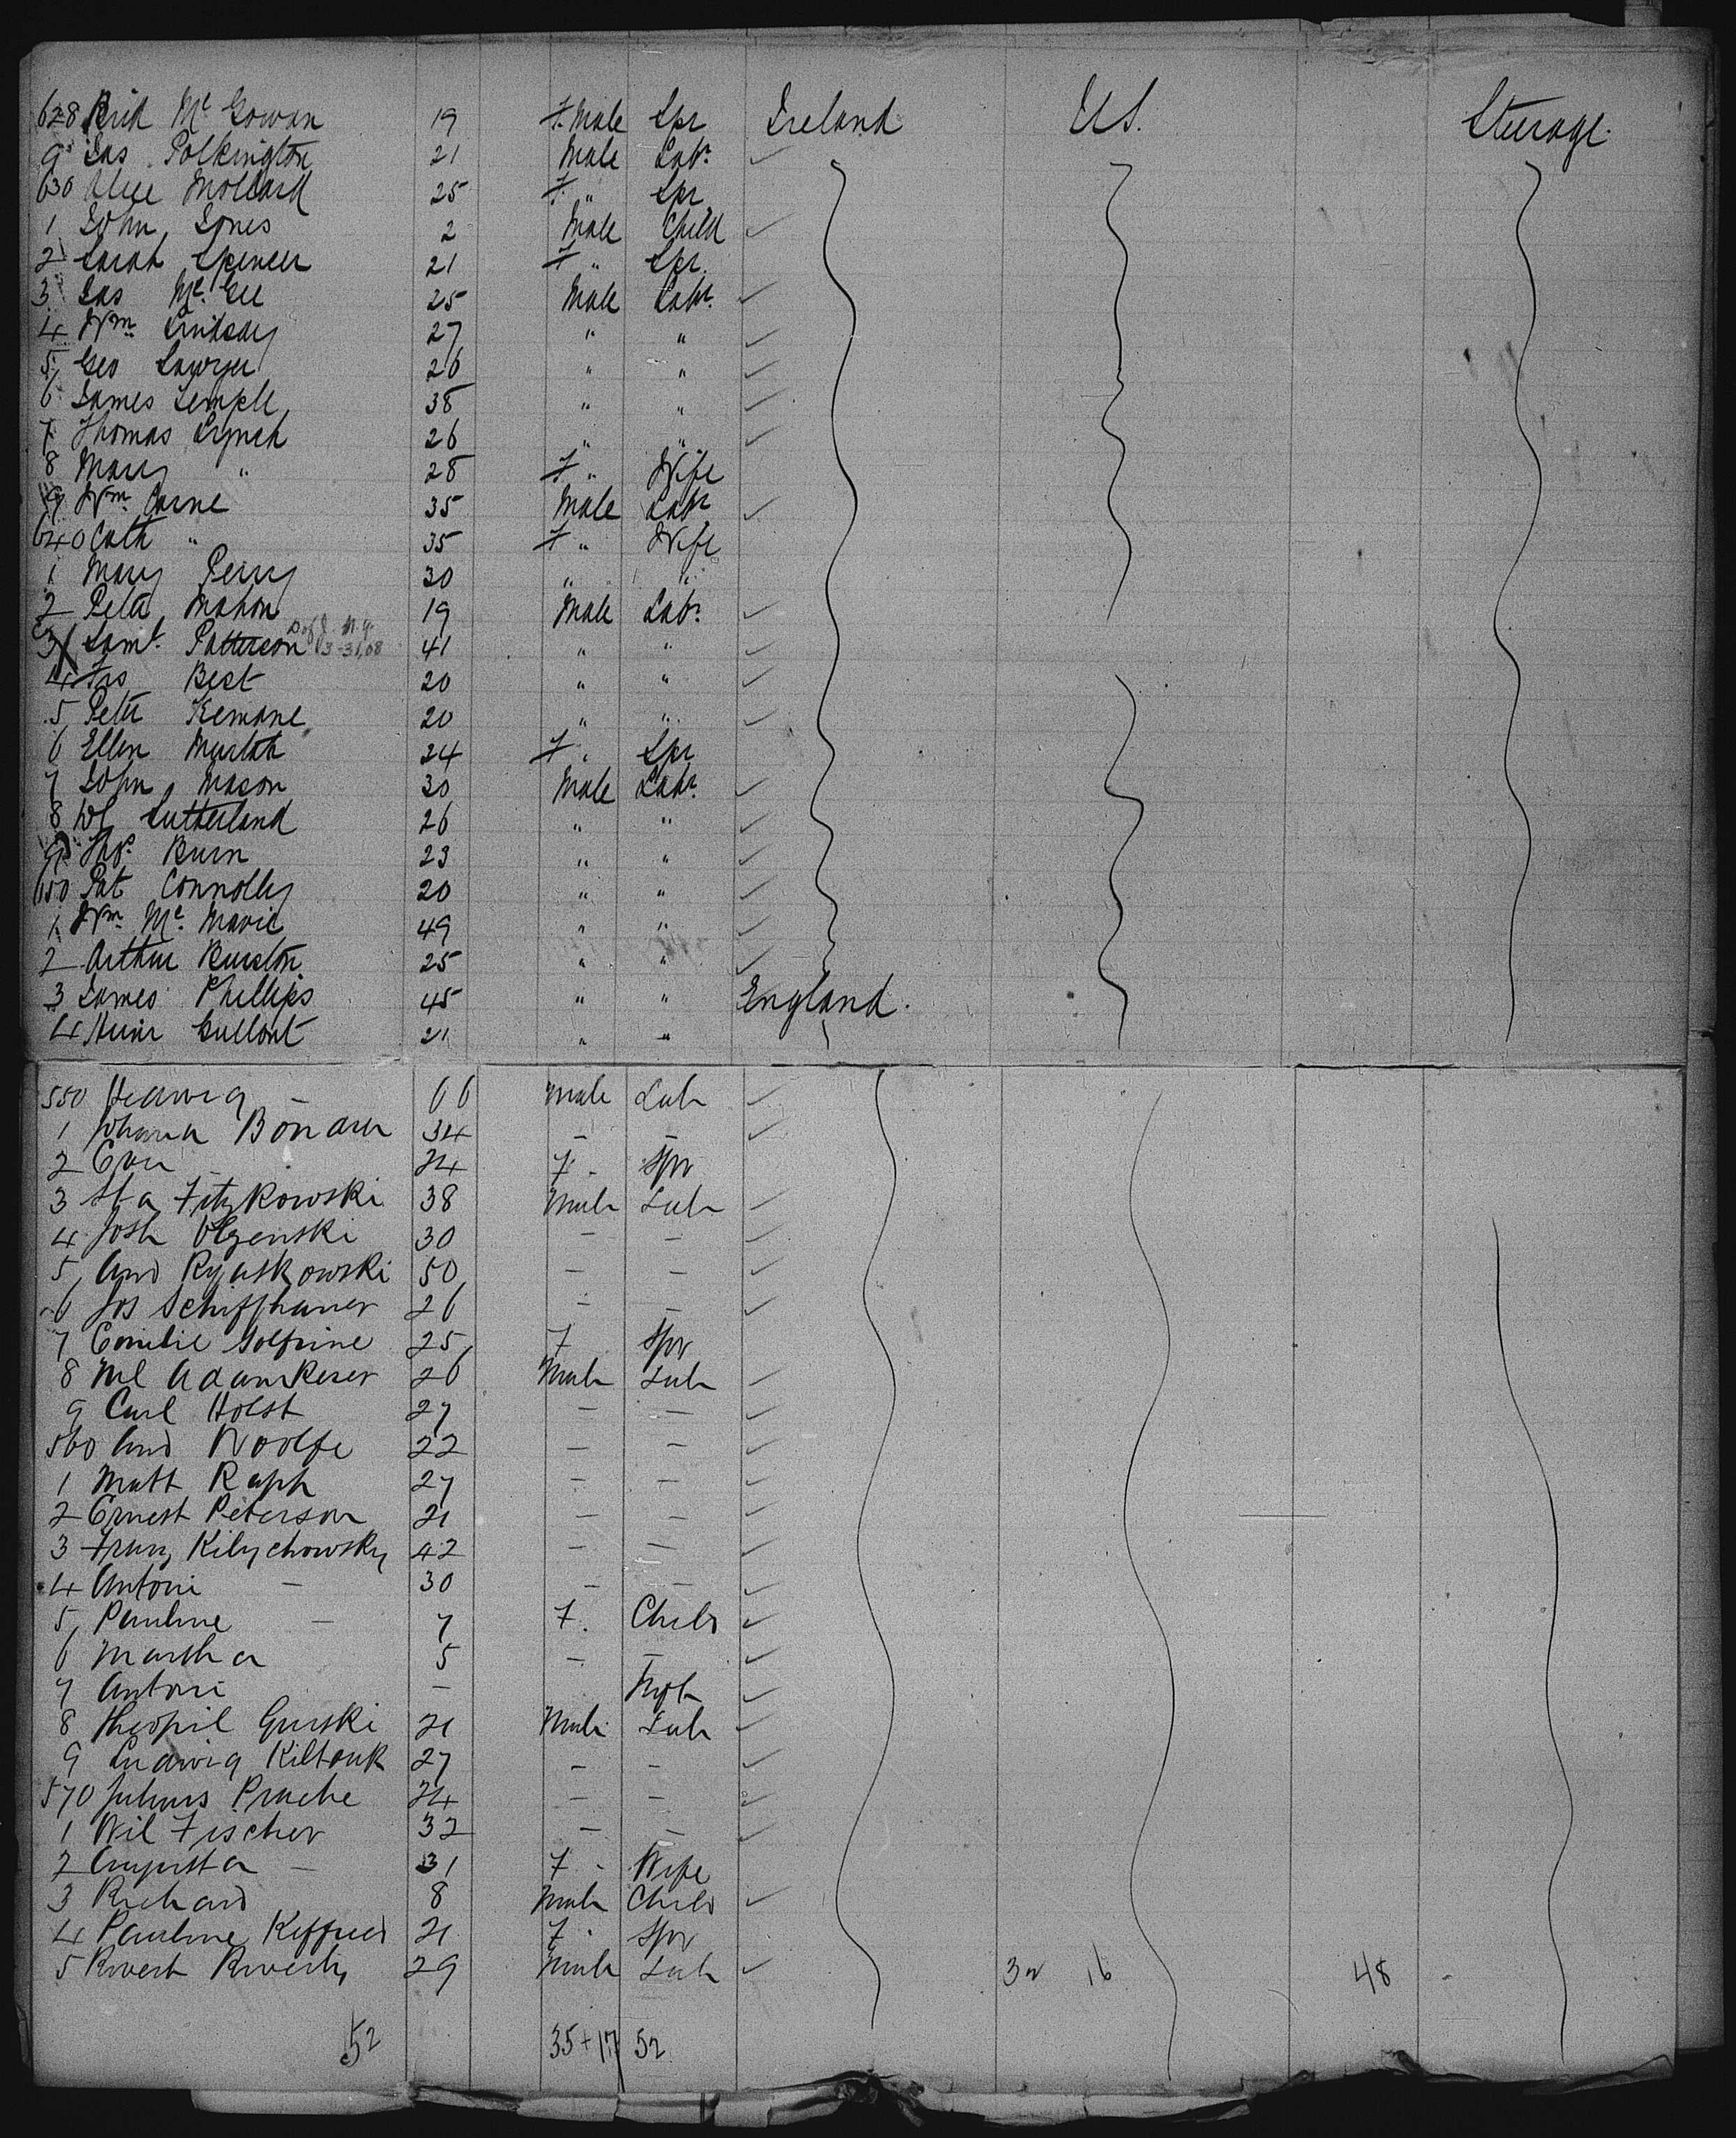 628 Brid Mc Gowan 19 F. Male Spr Ireland U.S. Steerage.
9 Jas Polkington 21 Male Labr
630 Alice Mollard 25 F. " Spr
1 John Jones 2 Male Child
2 Sarah Spencer 21 F " Spr.
3 Jas Mc. Gee 25 Male Labr.
4 Wm Lindsay 27 " "
5 Geo Sawyer 26 " "
6 James Temple 38 " "
7 Thomas Lynch 26 " "
8 Mary " 28 F " Wife
9 Wm Carne 35 Male Labr
640 Cath " 35 F " Wife
1 Mary Perry 30 " "
2 Peter Mahon 19 Male Labr
3 Saml. Patterson 3-31,08 41 " "
4 Jas Best 20 " "
5 Peter 20 " "
6 Ellen Murtah 24 F " Spr
7 John Mason 30 Male Labr.
8 Wl Sutherland 26 " "
9 Thos. Burn 23 " "
650 Pat Connolly 20 " "
1 Wm Mc. 49 " "
2 Arthur Burston 25 " "
3 James Phillips 45 " " England.
4 21 " "
550 Hedwig - 66 Male Lab
1 Johann 34 - -
2 Eva - 24 F - Spr
3 Sta Fitzkowski 38 Male Lab
4 Josh Olzenski 30 - -
5 And Ryatkowski 50 - -
6 Jos Schiffhauer 26 - -
7 Emilie 25 F Spr
8 Ml Adamkeser 26 Male Lab
9 Carl Holst 27 - -
560 And Woolfe 22 - -
1 Matt Raph 27 - -
2 Ernest Peterson 21 - -
3 Franz Kilychowsky 42 - -
4 Antoni - 30 - -
5 Pauline - 7 F. Child
6 Martha 5 - -
7 Antoni - Inft
8 Theopil Gurski 21 Male Lab
9 Ludwig Kiltouk 27 - -
570 Julius Prache 24 - -
1 Wil Fischer 32 - -
2 Augusta - 31 F - Wife
3 Richard 8 Male Child
4 Pauline 21 F - Spr
5 29 Male Lab 16 48
52 35+17 52